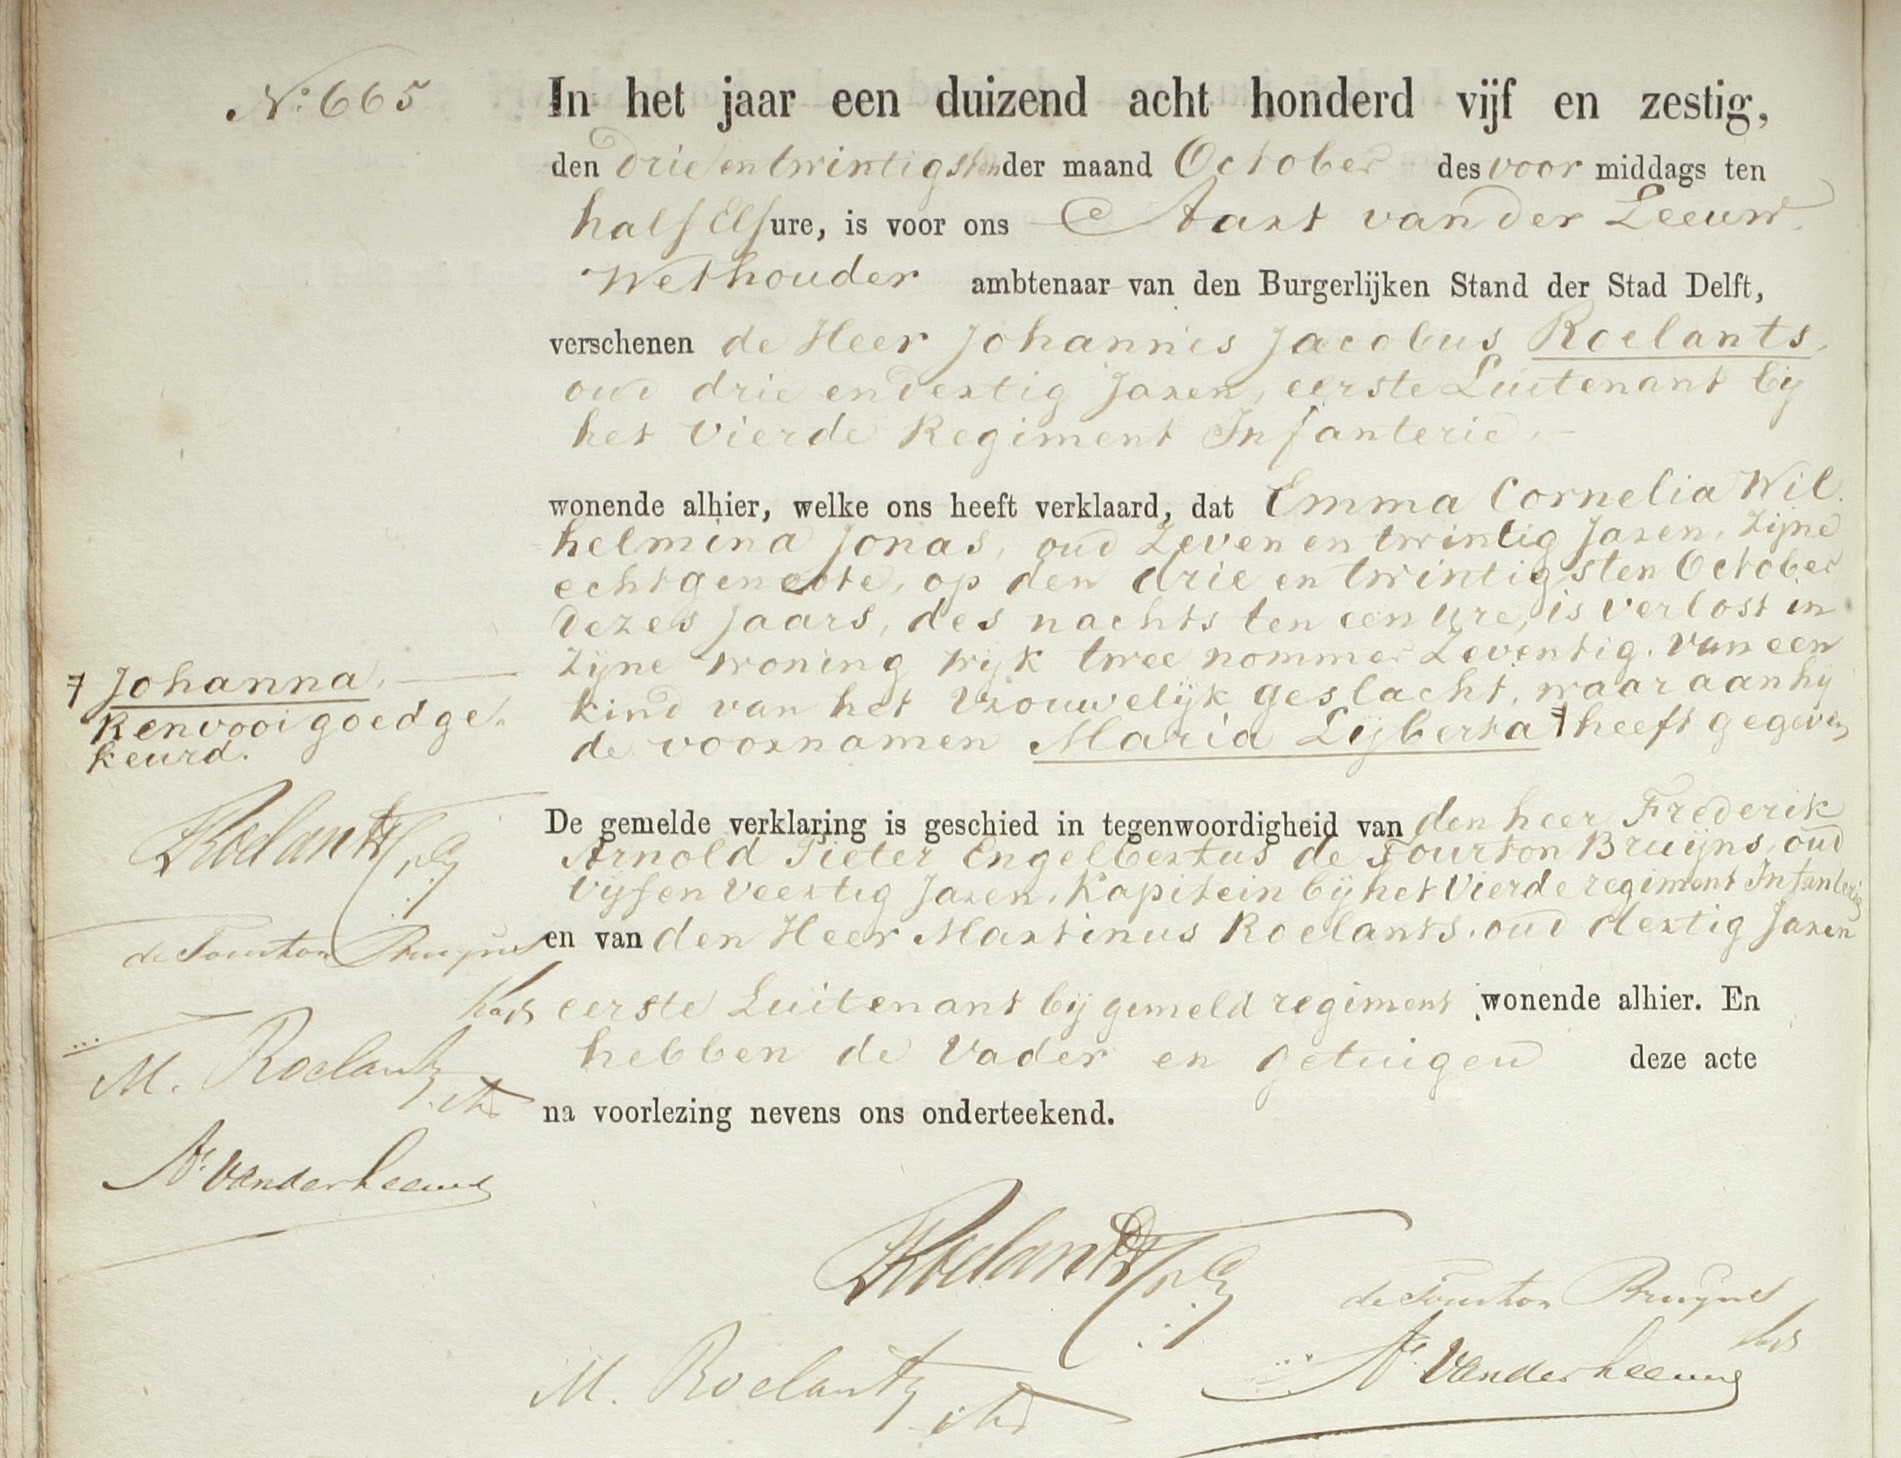 No. 665
In het jaar een duizend acht honderd vijf en zestig,
den drie en twintigsten der maand October des voor middags ten
half Elf ure, is voor ons Aart van der Leeuw
Wethouder ambtenaar van den Burgerlijken Stand der Stad Delft,
verschenen de Heer Johannis Jacobus Roelants,
oud drie en dertig Jaren, eerste Luitenant bij
het Vierde Regiment Infanterie.
wonende alhier, welke ons heeft verklaard, dat Emma Cornelia Wil
helmina Jonas, oud Zeven en twintig Jaren, Zijne
echtgenoote, op den drie en twintigsten October
dezes Jaars, des nachts ten een ure, is verlost in
zijne woning wijk twee nommer Zeventig. van een
kind van het Vrouwelijk geslacht, waar aan hij
de voornamen Maria Lijberta ǂ heeft gegeven
ǂ Johanna.
Renvooi goed ge
keurd.
Roelants
de Tourton Bruyns
M. Roelants
A. van der Leeuw
De gemelde verklaring is geschied in tegenwoordigheid van den heer Frederik
Arnold Pieter Engelbertus de Tourton Bruijns, oud
Vijf en Veertig Jaren, Kapitein bij het Vierde regiment Infanterie
en van den Heer Martinus Roelants, oud dertig Jaren
eerste Luitenant bij gemeld regiment wonende alhier. En
hebben de Vader en getuigen deze acte
na voorlezing nevens ons onderteekend.
Roelants
de Tourton Bruyns
M. Roelants
A. van der Leeuw